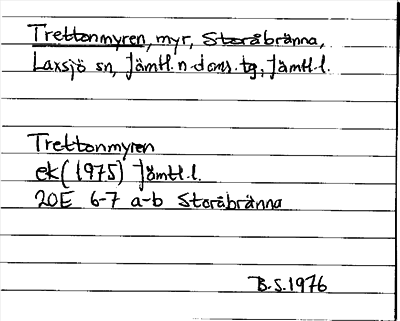 Trettonmyren, myr, Storåbränna,
Laxsjö sn, Jämtl. n. doms. tg, Jämtl. l.
Trettonmyren
ek (1975) Jämtl. l.
20E 6-7 a-b Storåbränna
B.S. 1976